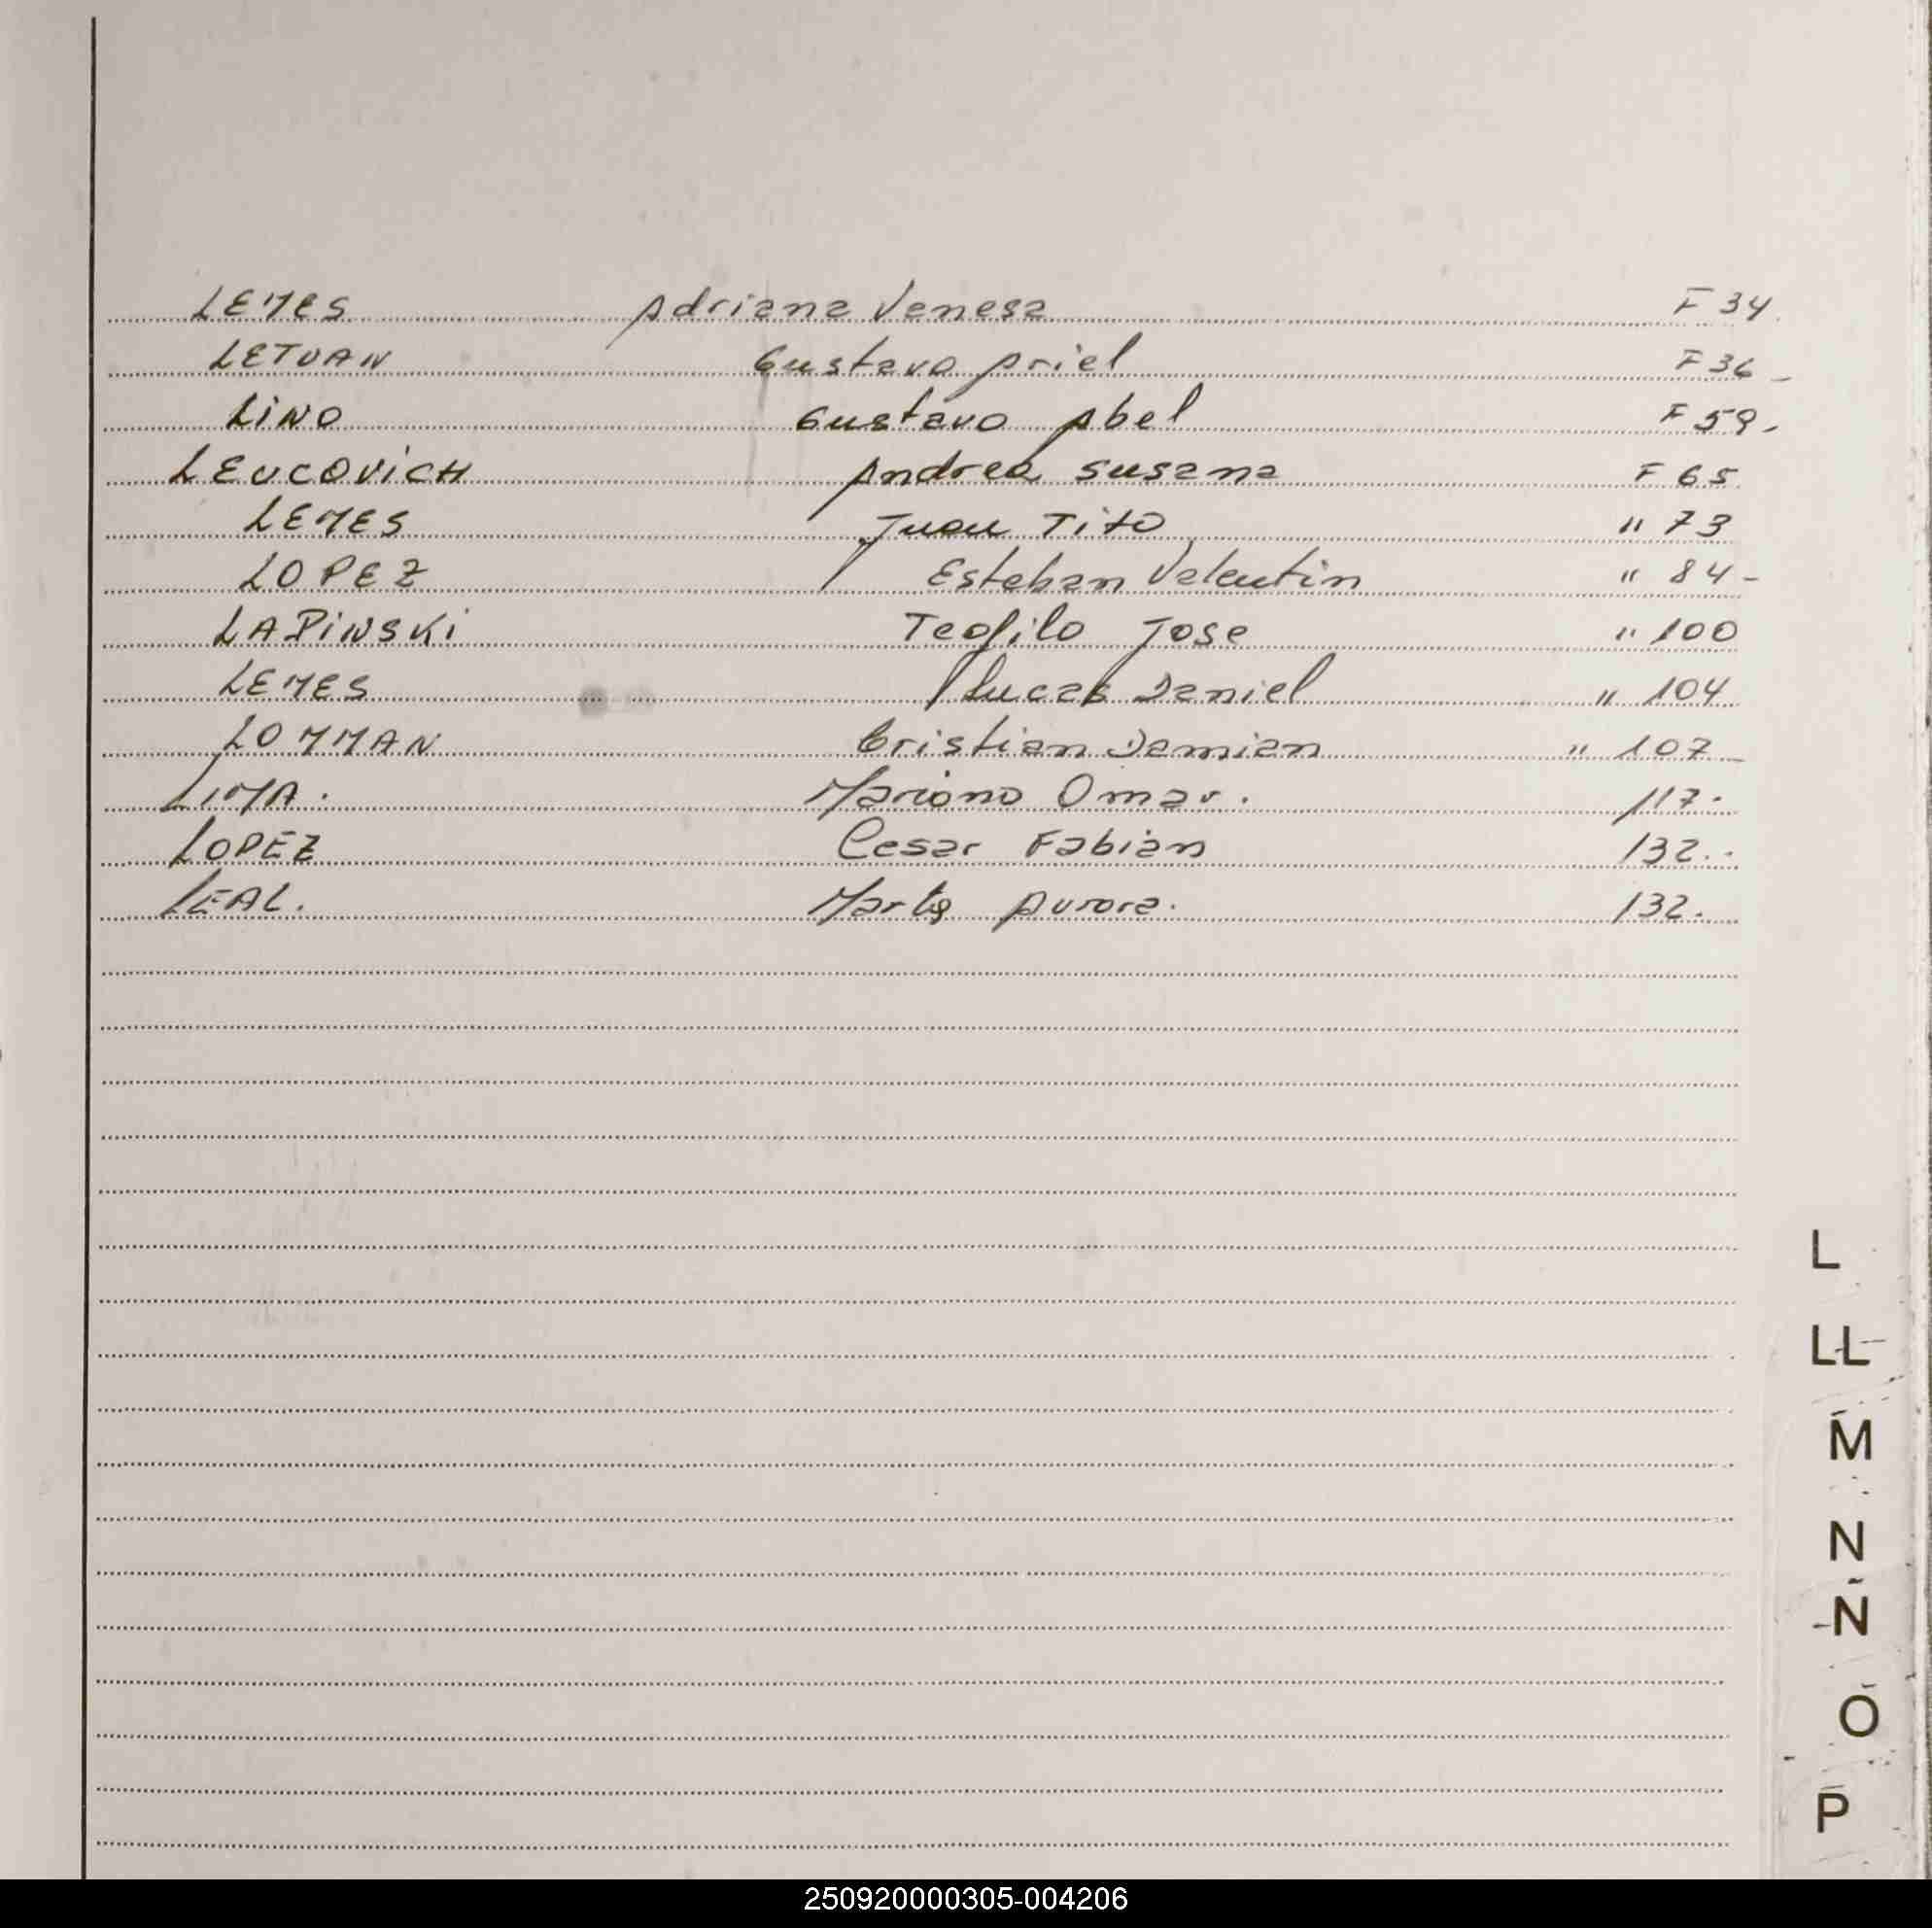 LEMES Adriana Vanesa F 34.
LETVAN Gustavo Ariel F 36 -
LINO Gustavo Abel F 59.
LEUCOVICH Andrea Susana F 65
LEMES Juan Tito " 73
LOPEZ Esteban Valentin " 84 -
LAPINSKI Teofilo Jose " 100
LEMES Lucas Daniel " 104
LOMMAN Cristian Damian " 107
LIMA. Mariano Omar. 117.
LOPEZ Cesar Fabian 132..
LEAL. Marta Aurora. 132.
L
LL
M
N
Ñ
O
P
250920000305-004206